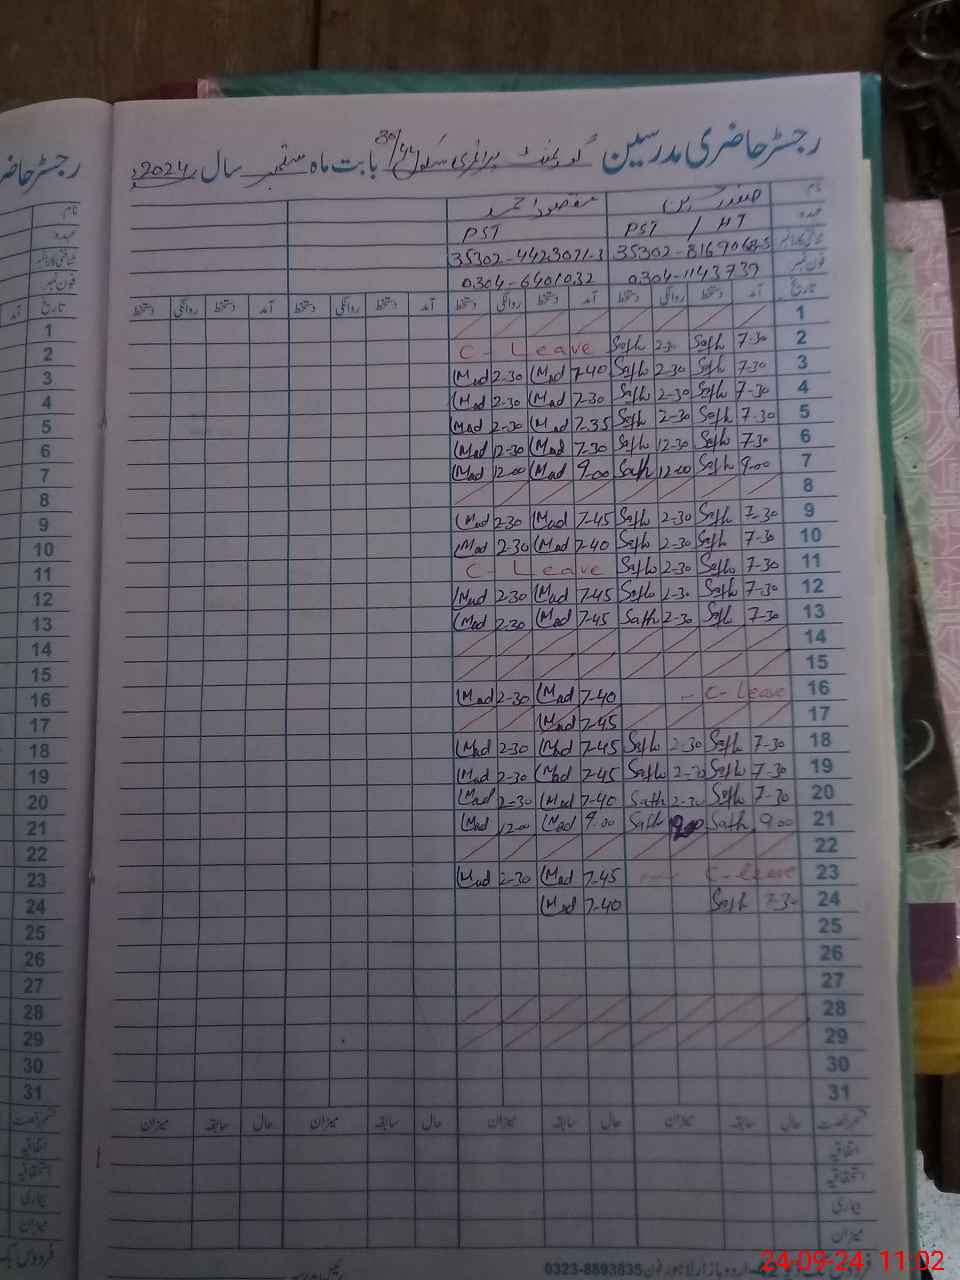 رجسٹر حاضری مدرسین گورنمنٹ پرائمری سکول 30/44 بابت ماہ ستمبر سال 2024ء
نام صفدر مقصود احمد
عہدہ PST / HT PST
شناختی کارڈ نمبر 35302-8169068-5 35302-4423071-3
فون نمبر 0304-1143739 0304-6401032
تاریخ آمد دستخط روانگی دستخط آمد دستخط روانگی دستخط آمد دستخط روانگی دستخط آمد دستخط روانگی دستخط
1
2 7-30 Safh 2-30 Safh C - Leave
3 7-30 Safh 2-30 Safh 7-40 Mad 2-30 Mad
4 7-30 Safh 2-30 Safh 7-30 Mad 2-30 Mad
5 7-30 Safh 2-30 Safh 7-35 Mad 2-30 Mad
6 7-30 Safh 12-30 Safh 7-30 Mad 12-30 Mad
7 9-00 Safh 12-00 Safh 9-00 Mad 12-00 Mad
8
9 7-30 Safh 2-30 Safh 7-45 Mad 2-30 Mad
10 7-30 Safh 2-30 Safh 7-40 Mad 2-30 Mad
11 7-30 Safh 2-30 Safh C - Leave
12 7-30 Safh 2-30 Safh 7-45 Mad 2-30 Mad
13 7-30 Safh 2-30 Safh 7-45 Mad 2-30 Mad
14
15
16 C - Leave 7-40 Mad 2-30 Mad
17 7-45 Mad
18 7-30 Safh 2-30 Safh 7-45 Mad 2-30 Mad
19 7-30 Safh 2-30 Safh 7-45 Mad 2-30 Mad
20 7-30 Safh 2-30 Safh 7-40 Mad 2-30 Mad
21 9.00 Safh 12.00 Safh 9.00 Mad 12-00 Mad
22
23 C - leave 7-45 Mad 2-30 Mad
24 7-30 Safh 7-40 Mad
25
26
27
28
29
30
31
حال سابقہ میزان حال سابقہ میزان حال سابقہ میزان حال سابقہ میزان
اتفاقیہ
استحقاقیہ
بیماری
میزان
اردو بازار لاہور فون 0323-8893835
24-09-24 11:02